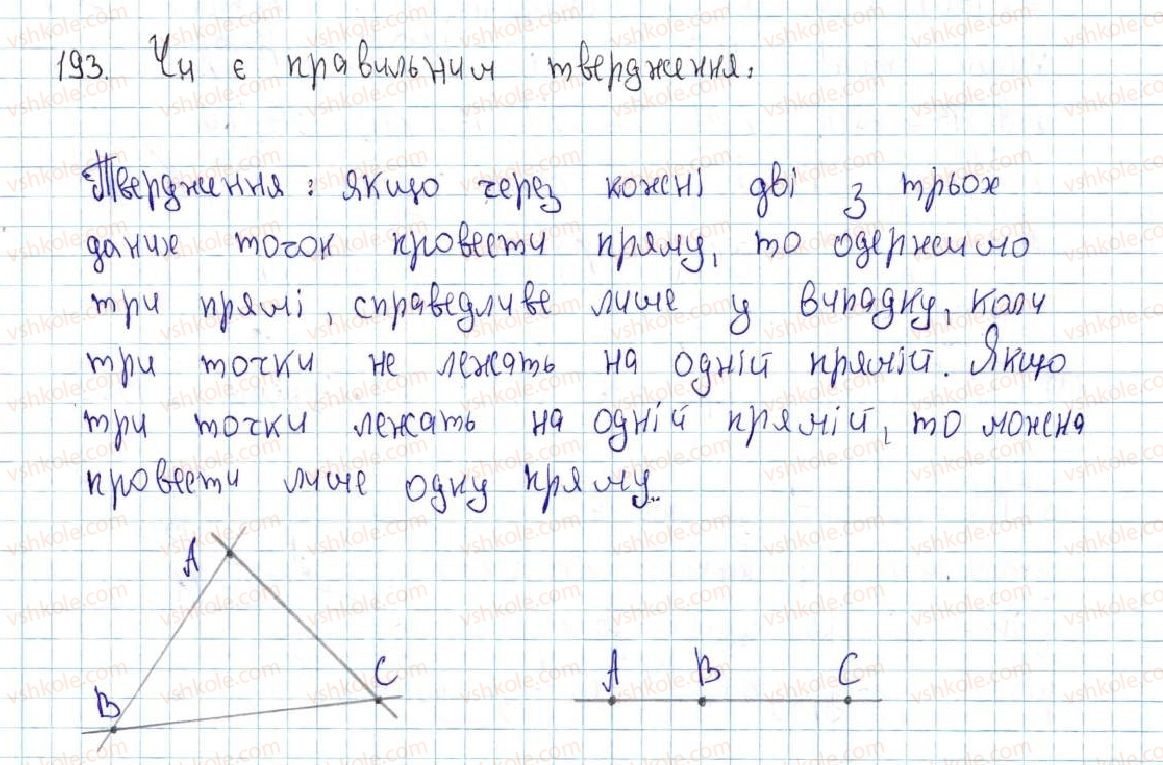 193. Чи є правильним твердження:
Твердження: якщо через кожні дві з трьох
даних точок провести пряму, то одержимо
три прямі, справедливе лише у випадку, коли
три точки не лежать на одній прямій. Якщо
три точки лежать на одній прямій, то можна
провести лише одну пряму.
A
B
C
A B C
vshkole.com